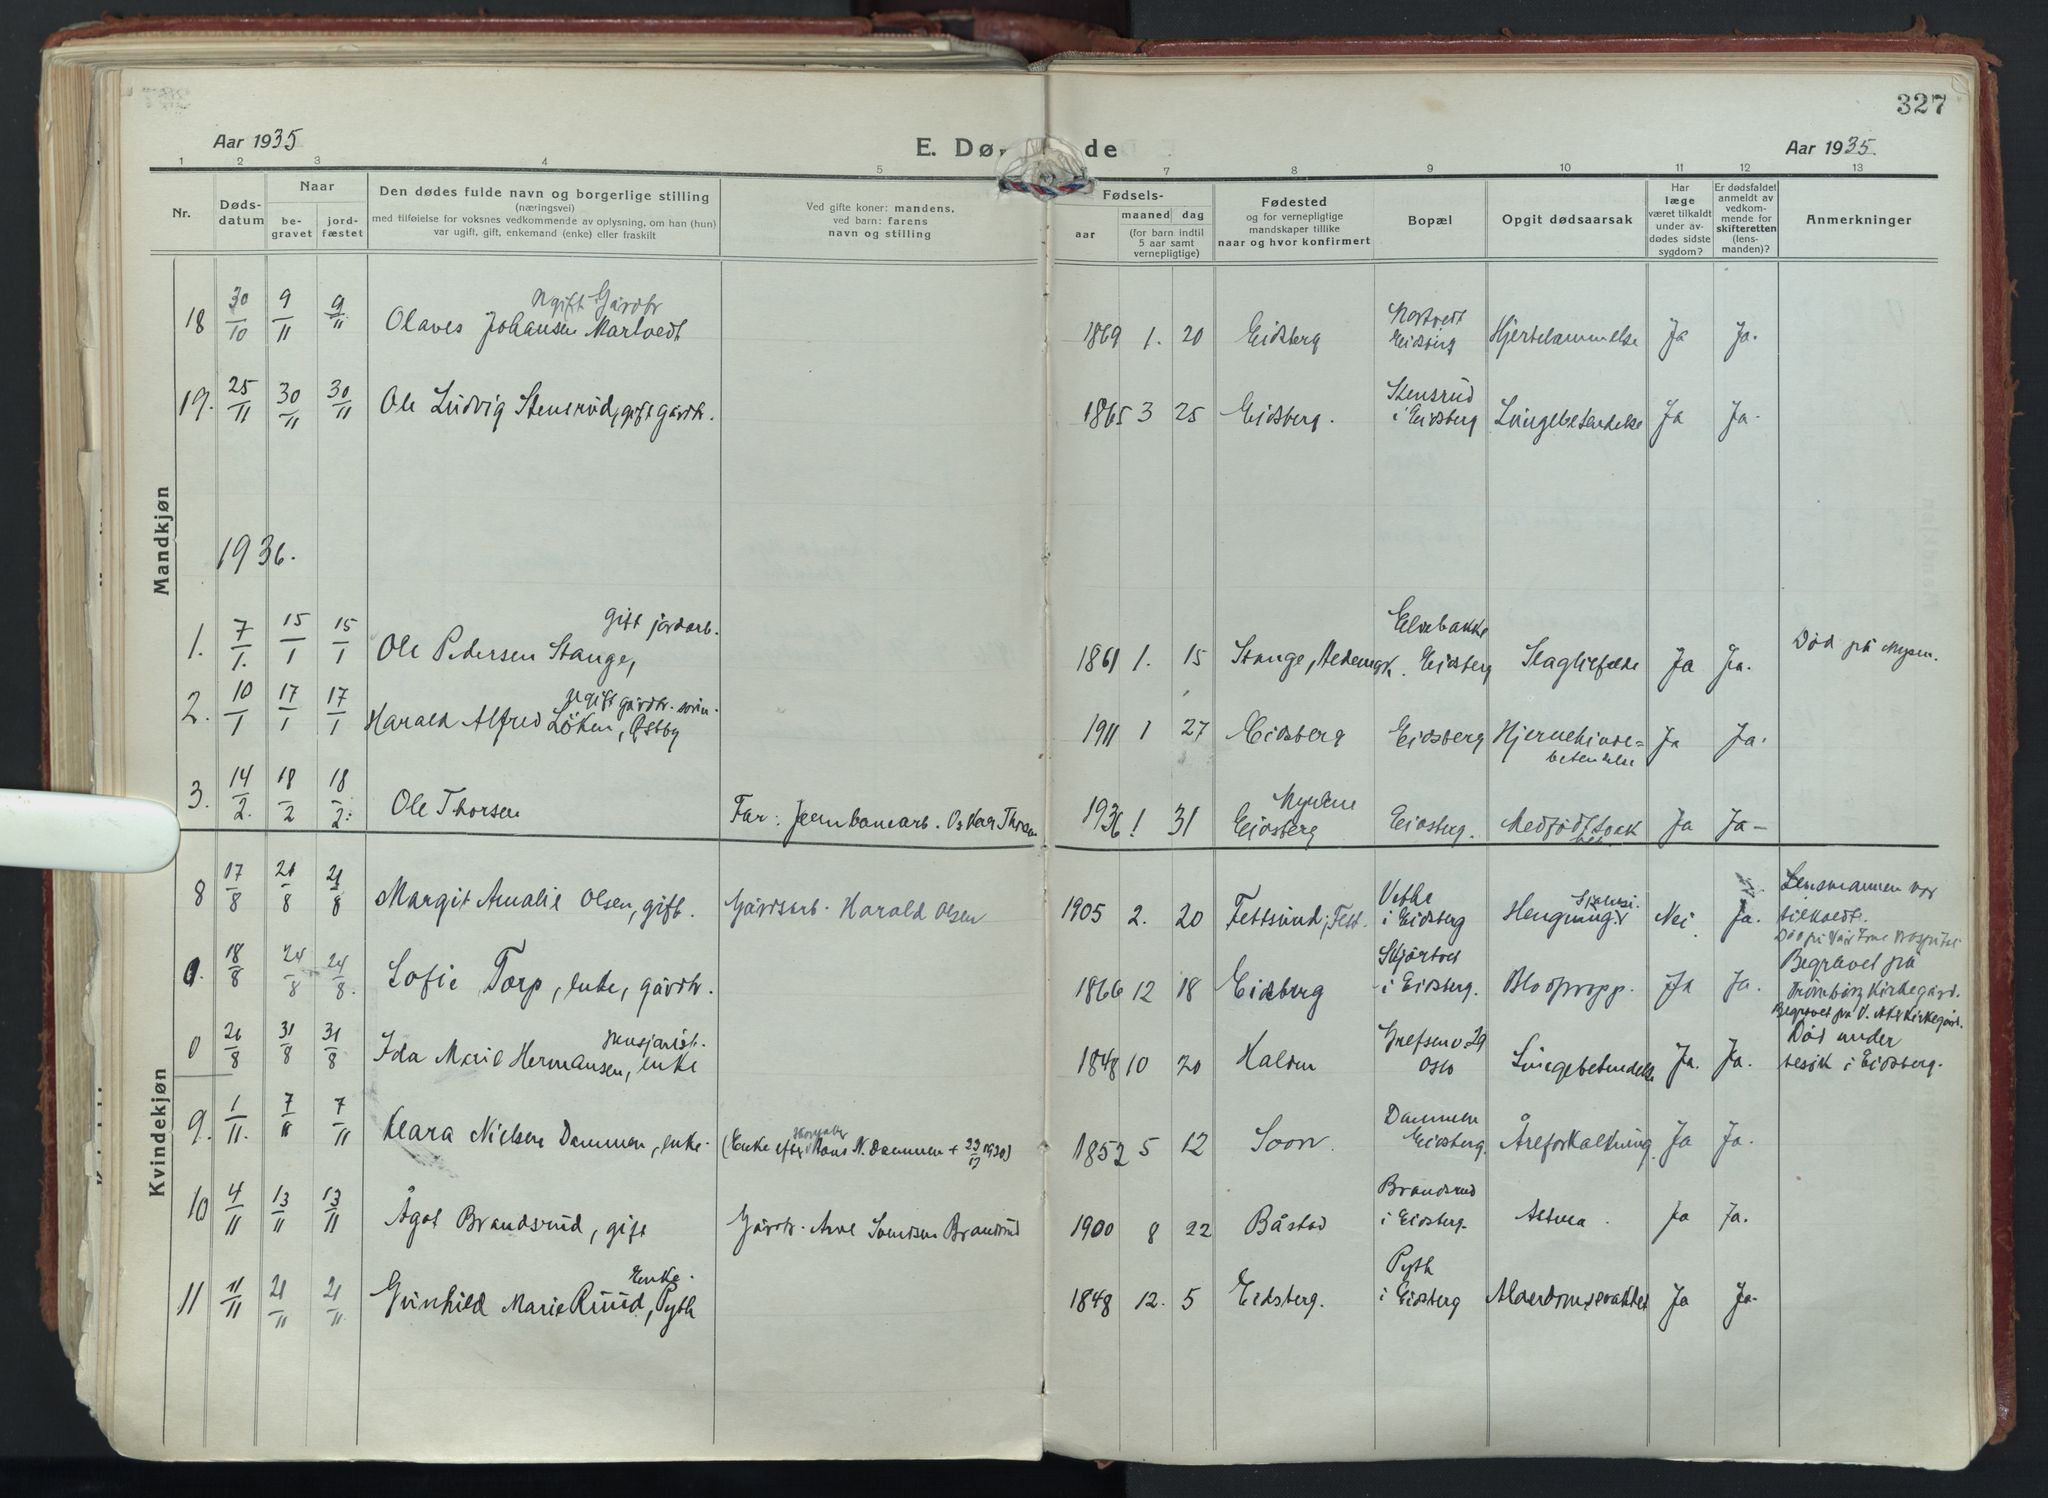 327
Aar 1935
E. Dø de
Aar 1935.
1 2 3 4 5 7 8 9 10 11 12 13
Nr.
Døds-
datum
Naar
be-
gravet
jord-
fæstet
Den dødes fulde navn og borgerlige stilling
(næringsvei)
med tilføielse for voksnes vedkommende av oplysning, om han (hun)
var ugift, gift, enkemand (enke) eller fraskilt
Ved gifte koner: mandens,
ved barn: farens
navn og stilling
Fødsels-
aar
maaned dag
(for barn indtil
5 aar samt
vernepligtige)
Fødested
og for vernepligtige
mandskaper tillike
naar og hvor konfirmert
Bopæl
Opgit dødsaarsak
Har
læge
været tilkaldt
under av-
dødes sidste
sygdom?
Er dødsfaldet
anmeldt av
vedkom-
mende for
skifteretten
(lens-
manden)?
Anmerkninger
Mandkjøn
18 30/10 9/11 9/11 Olaves Johansen Martvedt ugift Gårdbr 1869 1. 20 Eidsberg Eidsberg Hjertelammelse Ja Ja.
19. 25/11 30/11 30/11 Ole Ludvig Stensrud, gift gårdbr. 1865 3 25 Eidsberg. Stensrud i Eidsberg Lungebetendelse Ja Ja.
1936.
1. 7/1. 15/1 15/1 Ole Pedersen Stange, gift jordarb. 1861 1. 15 Stange, Hedemark. Elvebakke Eidsberg Slagtilfelde Ja Ja. Død på Mysen.
2. 10/1 17/1 17/1 Harald Alfred Løken, Østby ugift gårdbr. sønn. 1911 1 27 Eidsberg Eidsberg Hjernehinde=
betendelse Ja Ja.
3. 14/2. 18/2 18/2. Ole Thorsen Far: Jernbanearb. Oskar Thorsen 1936 1 31 Eidsberg Eidsberg. Medfødt svakhet Ja Ja-
Kvindekjøn
8 17/8 21/8 21/8 Margit Amalie Olsen, gift. Gårdsarb. Harald Olsen 1905 2. 20 Fettsund, Fet. i Eidsberg Hengning Nei Ja. Lensmannen var
tilkaldt.
18/8 24/8 24/8. Sofie Torp, enke, gårdbr. 1866 12 18 Eidsberg i Eidsberg. Blodpropp. Ja Ja. Begravet på
Trømborg Kirkegård.
0 26/8 31/8 31/8 Ida Marie Hermansen, enke pensjonist. 1848 10 20 Halden Oslo Lungebetendelse Ja. Ja. Død under
besøk i Eidsberg.
9. 1/11. 7/11 7/11 Klara Nielsen Dammen, enke. (Enke efter Hans N. Dammen + 1930) 1852 5 12 Soon Dammen Eidsberg. Åreforkalkning Ja Ja.
10 4/11 13/11 13/11 Ågot Brandsrud, gift Gårdbr. Arve Brandsrud 1900 8 22 Båstad Brandsrud i Eidsberg. Astma. Ja Ja.
11 11/11 21/11 21/11 Gunhild Marie Ruud, Pyth Enke. 1848 12. 5 Eidsberg. Pyth i Eidsberg Alderdomssvakhet Ja Ja.